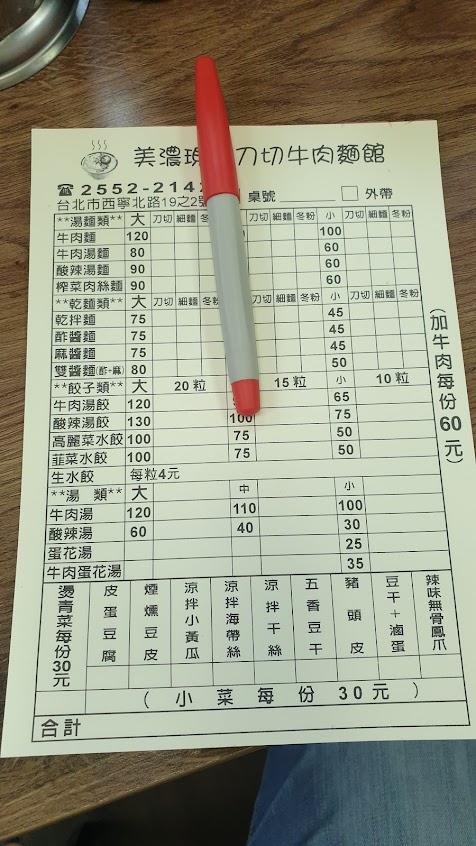 美濃 刀切牛肉麵館
☎2552-214 桌號 ______ □ 外帶
台北市西寧北路19之2
**湯麵類** 大 刀切 細麵 冬 刀切 細麵 冬粉 小 刀切 細麵 冬粉
牛肉麵 120 100
牛肉湯麵 80 60
酸辣湯麵 90 60
榨菜肉絲麵 90 60
**乾麵類** 大 刀切 細麵 冬粉 刀切 細麵 冬粉 小 刀切 細麵 冬粉
乾拌麵 75 45
酢醬麵 75 45
麻醬麵 75 45
雙醬麵(酢+麻) 80 50
**餃子類** 大 20粒 15粒 小 10粒
牛肉湯餃 120 65
酸辣湯餃 130 100 75
高麗菜水餃 100 75 50
韮菜水餃 100 75 50
生水餃 每粒4元
**湯 類** 大 中 小
牛肉湯 120 110 100
酸辣湯 60 40 30
蛋花湯 25
牛肉蛋花湯 35
(加牛肉每份60元)
燙青菜每份30元
皮蛋豆腐
煙燻豆皮
涼拌小黃瓜
涼拌海帶絲
涼拌干絲
五香豆干
豬頭皮
豆干+滷蛋
辣味無骨鳳爪
(小菜每份30元)
合計